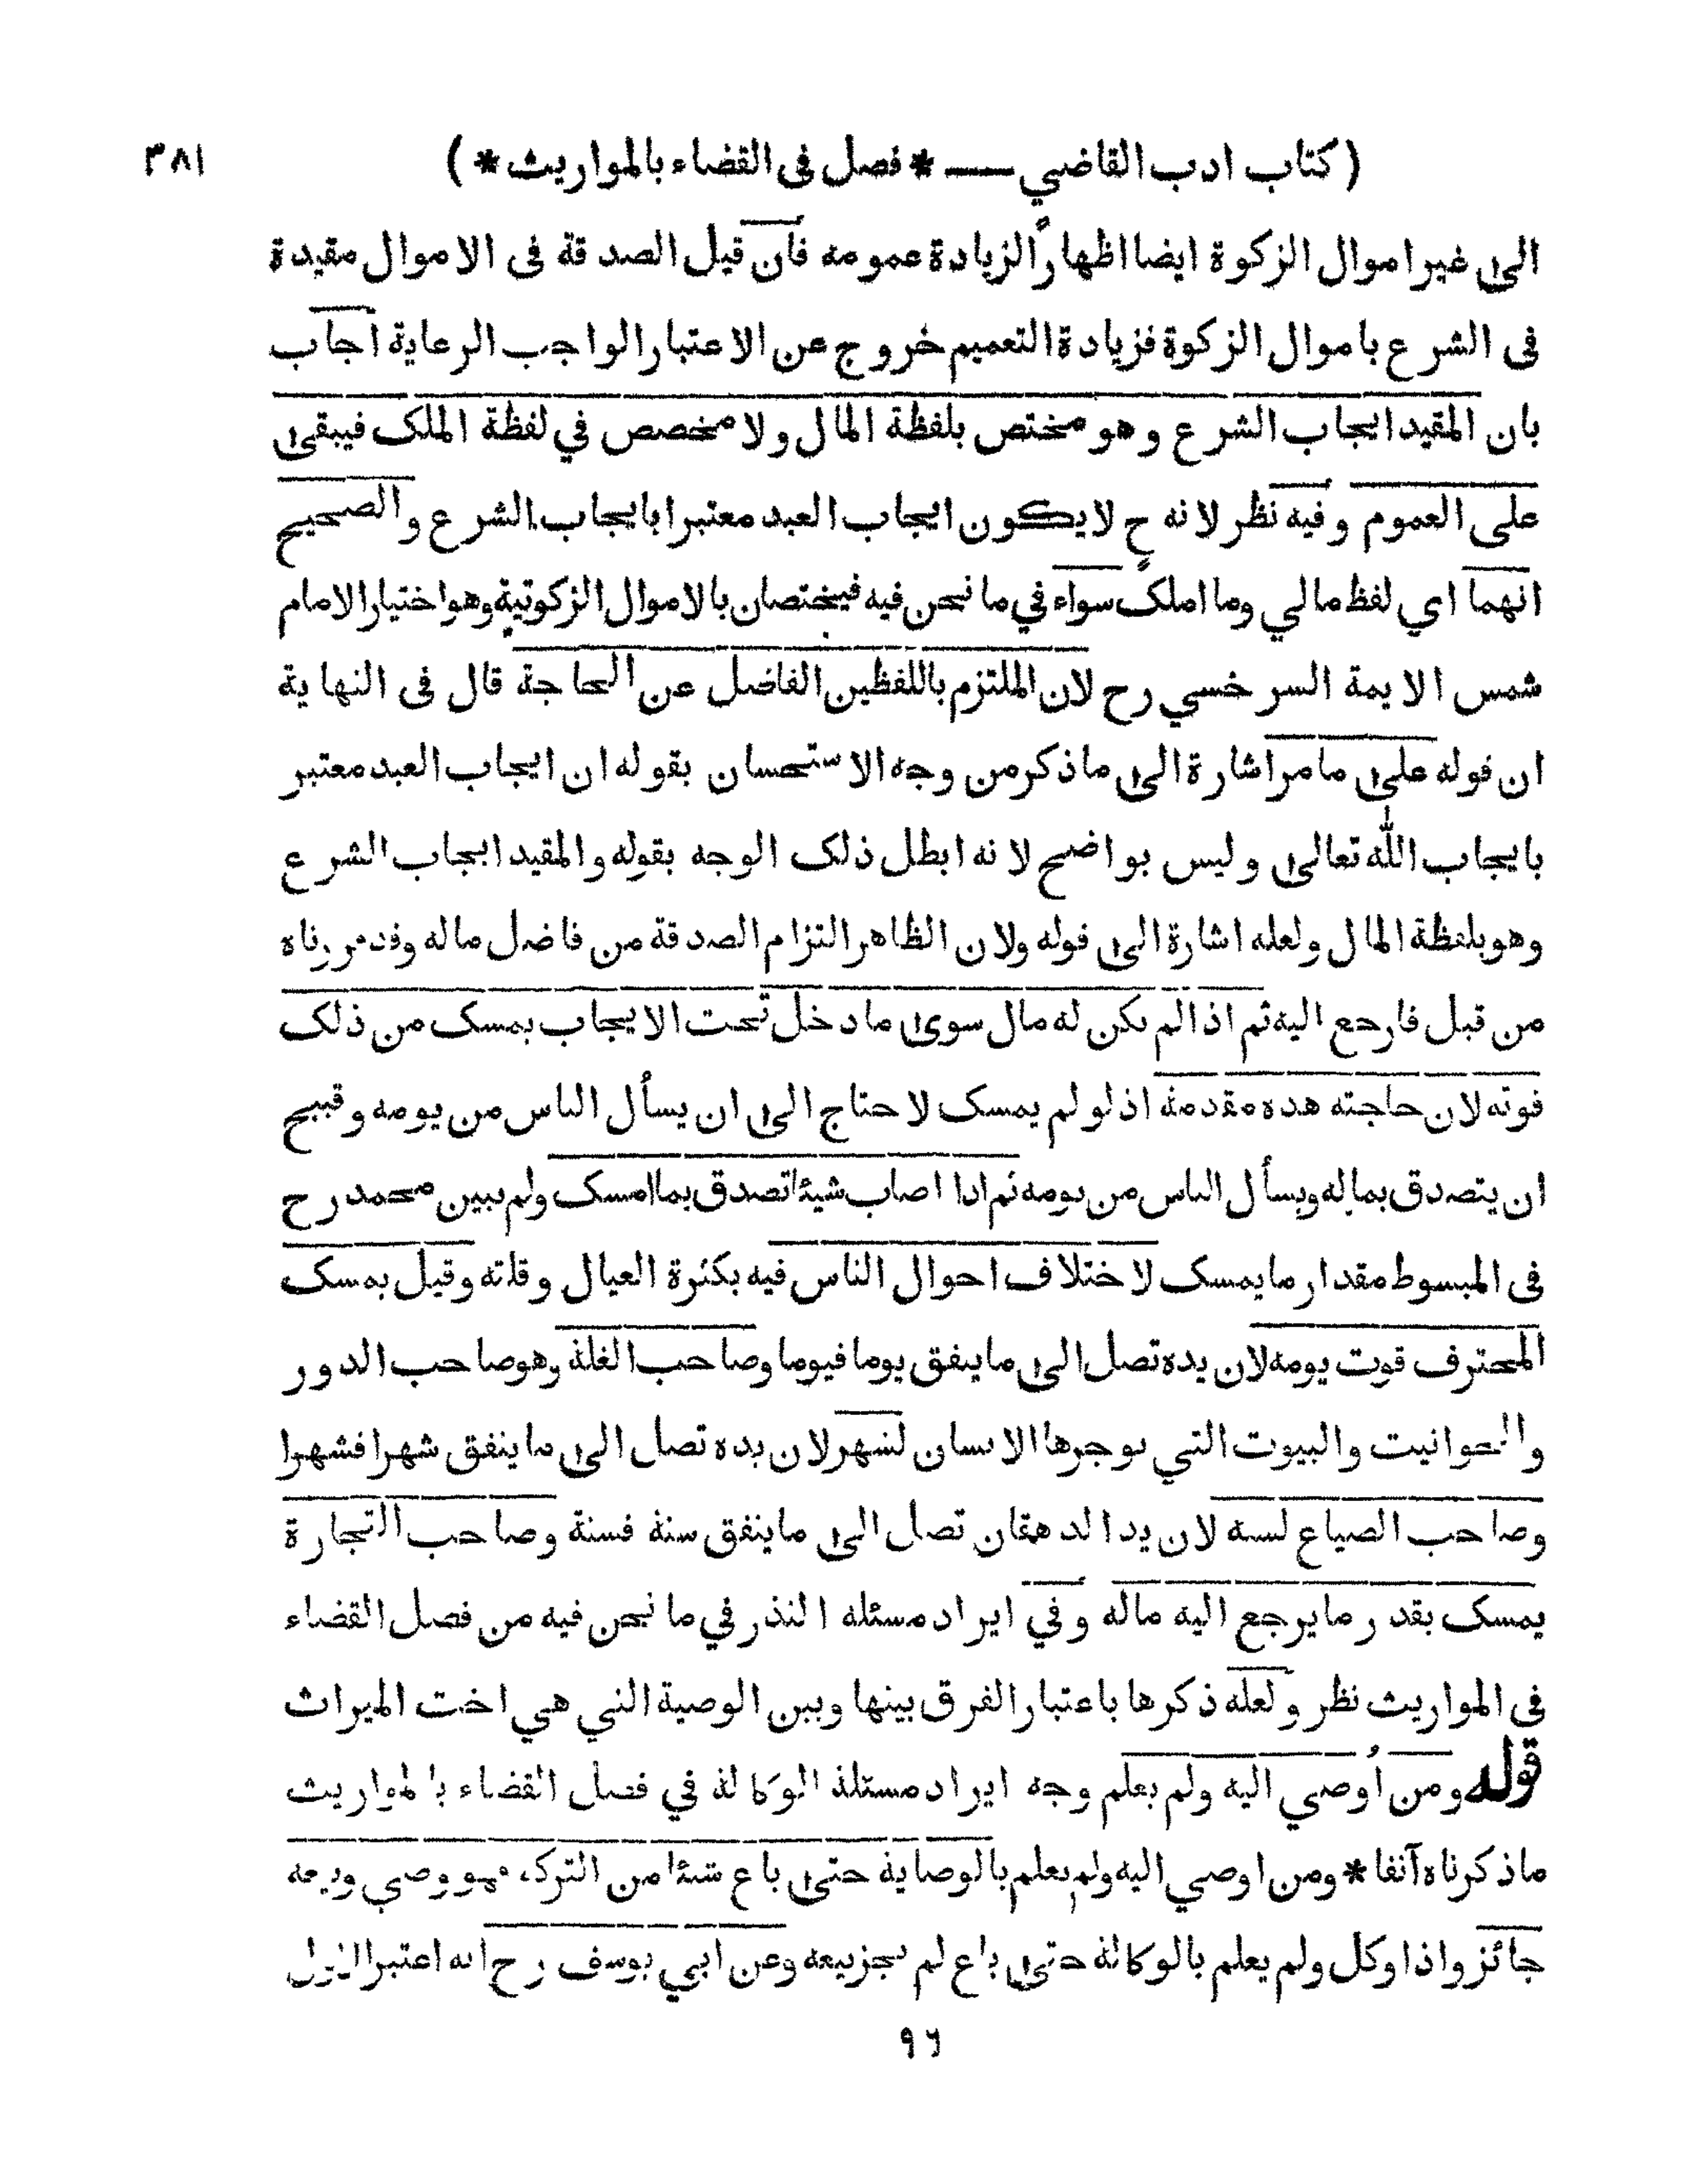 ( كتاب ادب القاضي — * فصل فى القضاء بالمواريث * ) ٣٨١
الى غير اموال الزكوة ايضا اظهارا لزيادة عمومه فان قيل الصدقة فى الاموال مقيدة
فى الشرع باموال الزكوة فزيادة التعميم خروج عن الاعتبار الواجب الرعاية اجاب
بان المقيد ايجاب الشرع وهو مختص بلفظة المال ولا مخصص في لفظة الملك فيبقى
على العموم وفيه نظر لانه ح لا يكون ايجاب العبد معتبرا بايجاب الشرع والصحيح
انهما اي لفظ مالي وما املك سواء في ما نحن فيه فيختصان بالاموال الزكوتية وهو اختيار الامام
شمس الايمة السرخسي رح لان الملتزم باللفظين الفاضل عن الحاجة قال فى النهاية
ان قوله على ما مر اشارة الى ما ذكر من وجه الاستحسان بقوله ان ايجاب العبد معتبر
بايجاب الله تعالى وليس بواضح لانه ابطل ذلك الوجه بقوله والمقيد ايجاب الشرع
وهو بلفظة المال ولعله اشارة الى قوله ولان الظاهر التزام الصدقة من فاضل ماله وقد مررناه
من قبل فارجع اليه ثم اذا لم يكن له مال سوى ما دخل تحت الايجاب يمسك من ذلك
قوته لان حاجته هذه مقدمة اذ لو لم يمسك لاحتاج الى ان يسأل الناس من يومه وقبيح
ان يتصدق بماله ويسأل الناس من يومه ثم اذا اصاب شيئا تصدق بما امسك ولم يبين محمد رح
فى المبسوط مقدار ما يمسك لاختلاف احوال الناس فيه بكثرة العيال وقلته وقيل يمسك
المحترف قوت يومه لان يده تصل الى ما ينفق يوما فيوما وصاحب الغلة وهو صاحب الدور
والحوانيت والبيوت التي يوجرها الانسان لشهر لان يده تصل الى ما ينفق شهرا فشهرا
وصاحب الضياع لسنة لان يد الدهقان تصل الى ما ينفق سنة فسنة وصاحب التجارة
يمسك بقدر ما يرجع اليه ماله وفي ايراد مسئلة النذر في ما نحن فيه من فصل القضاء
فى المواريث نظر ولعله ذكرها باعتبار الفرق بينها وبين الوصية التي هي اخت الميراث
قوله ومن أوصي اليه ولم يعلم وجه ايراد مسئلة الوكالة في فصل القضاء بالمواريث
ما ذكرناه آنفا * ومن اوصي اليه ولم يعلم بالوصاية حتى باع شيئا من التركة فهو وصي وبيعه
جائز واذا وكل ولم يعلم بالوكالة حتى باع لم يجز بيعه وعن ابي يوسف رح انه اعتبر الاول
٩٦